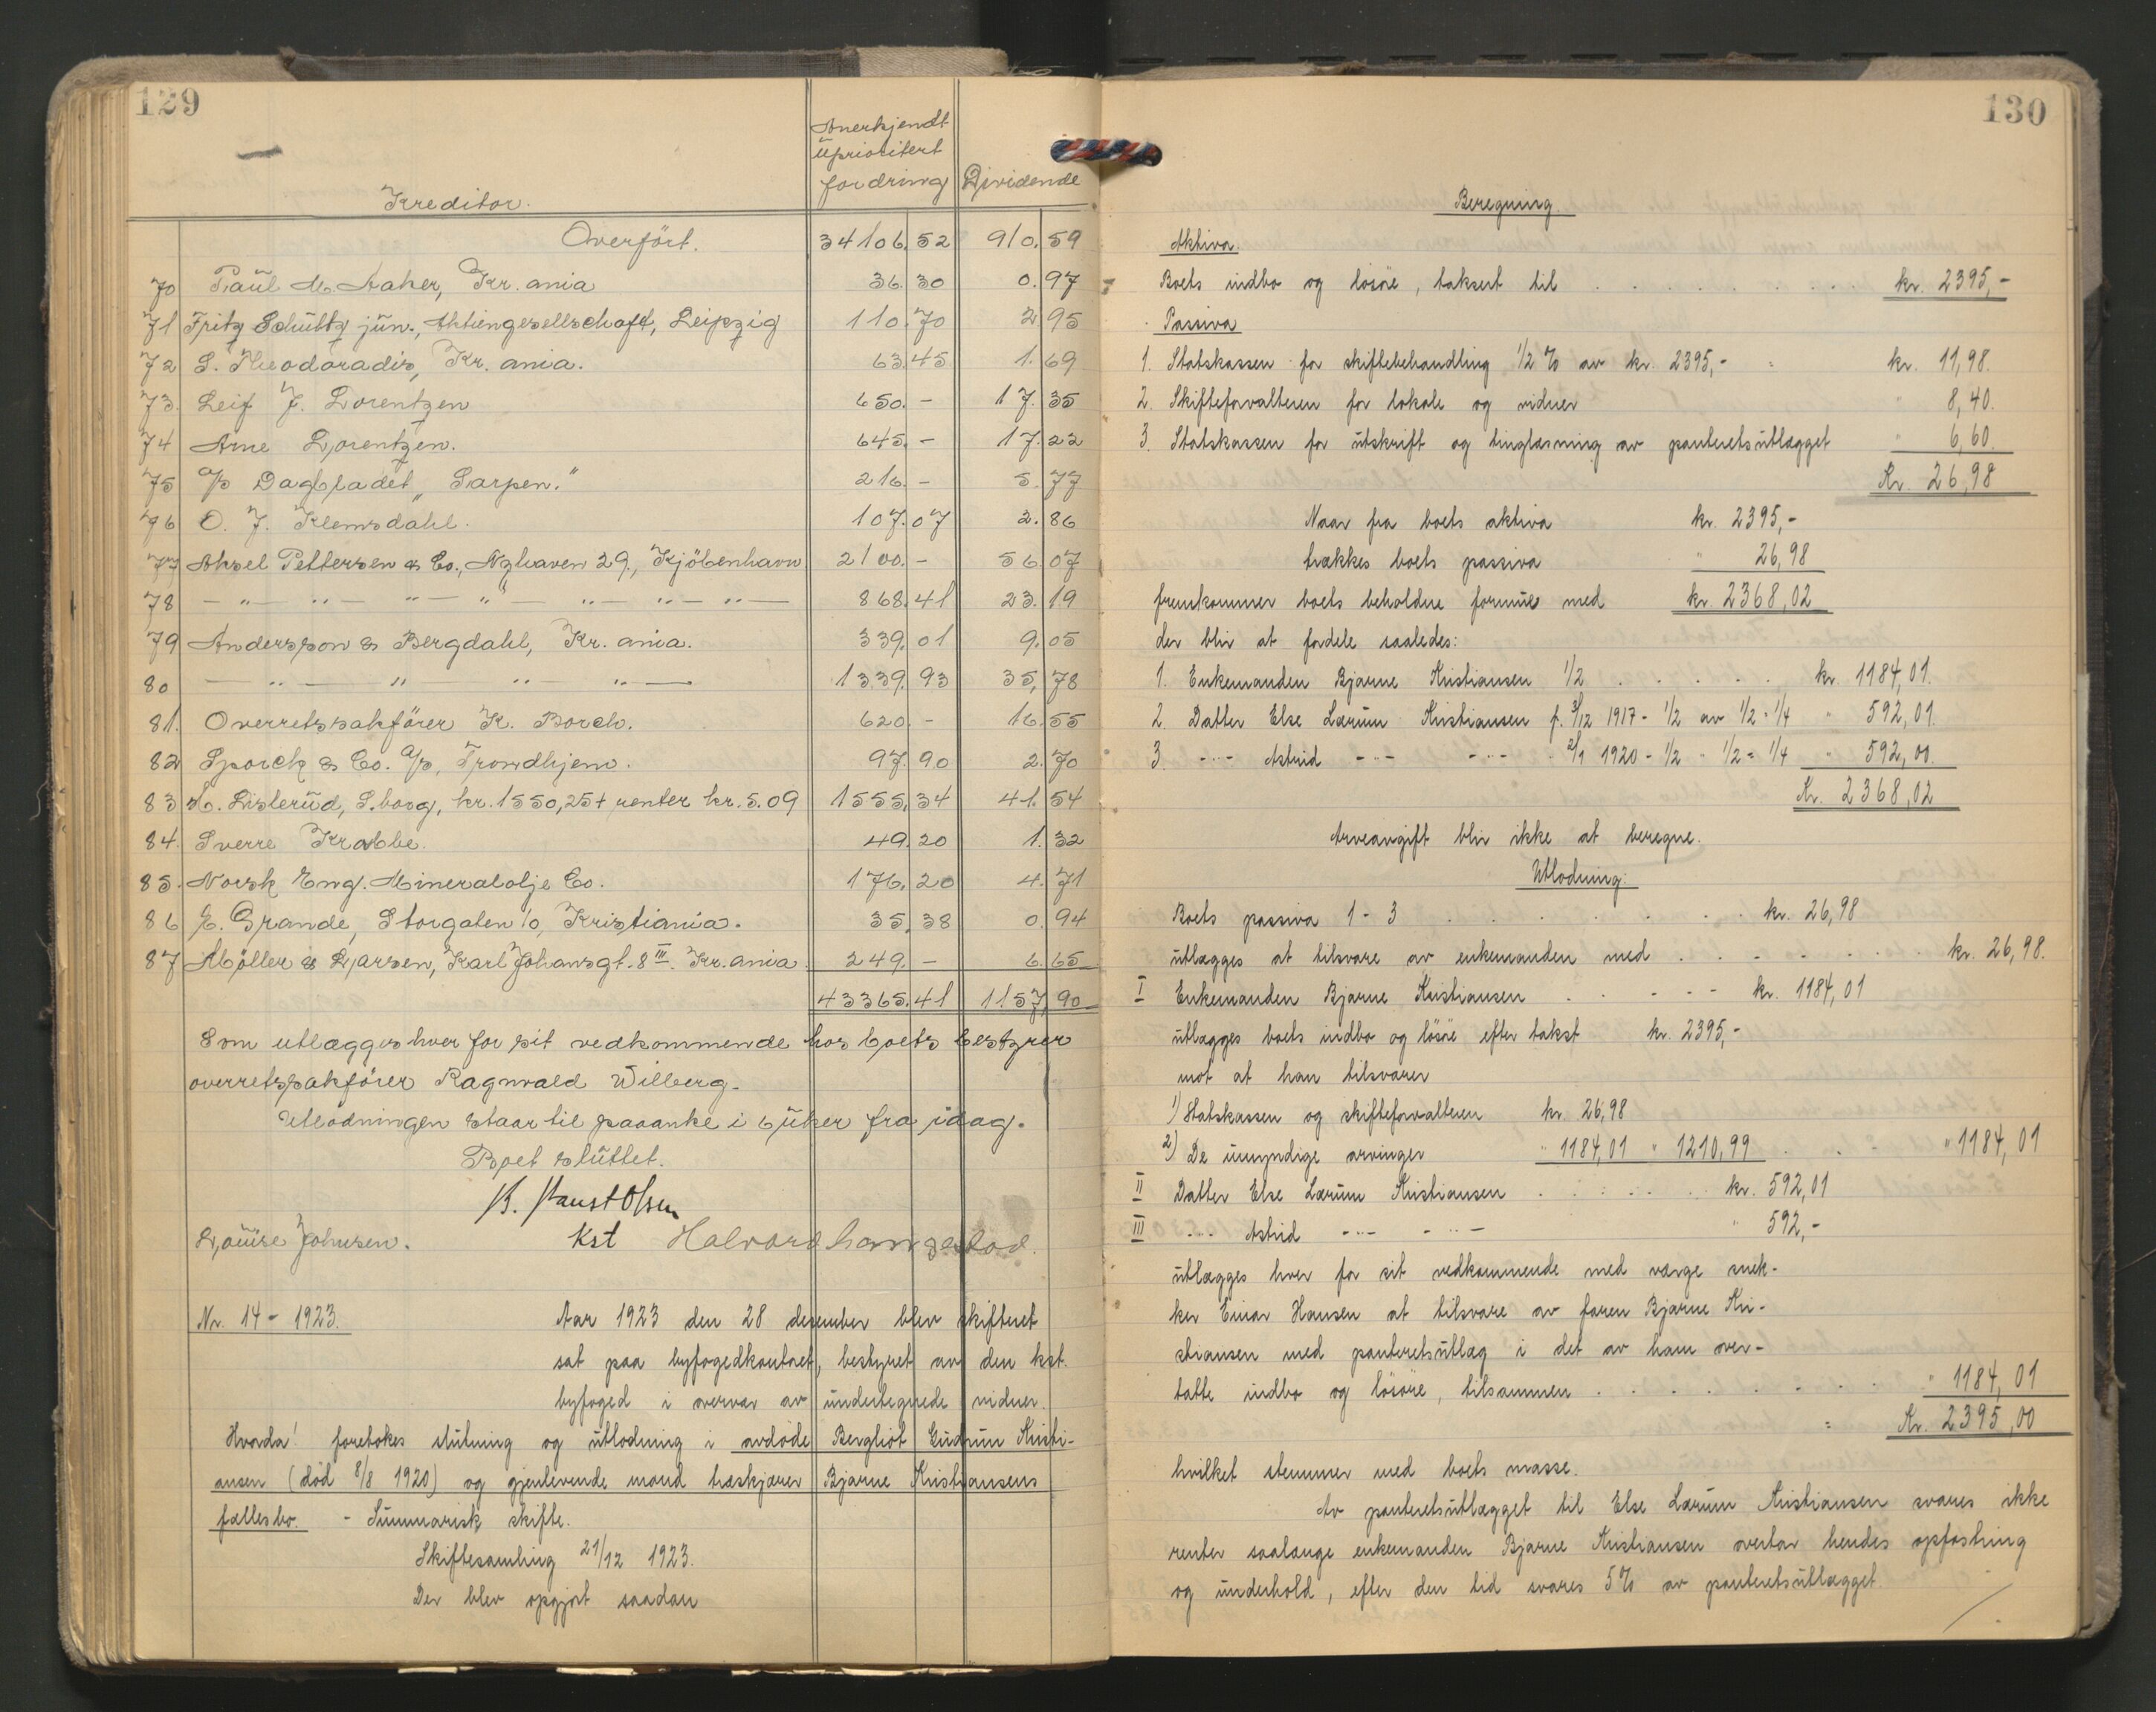 129
Anerkjendt
uprioritert
Kreditor. fordring Dividende
Overført. 34106.52 910.59
70 Paul M. Aaker, Kr.ania 36.30 0.97
71 Fritz Schultz jun., Aktiengesellschaft, Leipzig 110.70 2.95
72 S. Theodoradis, Kr.ania. 63.45 1.69
73 Leif F. Lorentzen 650.- 17.35
74 Arne Lorentzen. 645.- 17.22
75 A/S Dagbladet „Sarpen." 216.- 5.77
76 O. J. Klemsdahl. 107.07 2.86
77 Aksel Pettersen & Co., Nyhaven 29, Kjöbenhavn 2100.- 56.07
78 — " — " — " — " — " — " — " — 868.41 23.19
79 Andersson & Bergdahl, Kr.ania. 339.01 9.05
80 — " — " — " — " — 1339.93 35,78
81. Overretssakförer K. Borch. 620.- 16.55
82 Sporck & Co. A/S, Trondhjem. 97.90 2.70
83 H. Listerud, S.borg, kr. 1550,25 + renter kr. 5.09 1555,34 41.54
84. Sverre Krabbe. 49.20 1.32
85. Norsk Eng. Mineralolje Co. 176.20 4.71
86 E. Grande, Storgaten 10, Kristiania. 35.38 0.94
87 Möller & Larsen, Karl Johansgt. 8 III. Kr.ania 249.- 6.65
43365.41 1157.90
Som utlægges hver for sit vedkommende hos boets bestyrer
overretssakförer Ragnvald Wilberg.
Utlodningen staar til paaanke i 6 uker fra idag.
Boet sluttet.
B. Faust Olsen
Kst
Louise Johnsen. Halvard
Nr. 14 - 1923. Aar 1923 den 28 desember blev skifteret
sat paa byfogedkontoret, bestyret av den kst.
byfoged i overvær av undertegnede vidner.
Hvorda! foretokes slutning og utlodning i avdøde Bergliot Gudrun Kristi-
ansen (død 8/8 1920) og gjenlevende mand baskjærer Bjarne Kristiansens
fællesbo. - Summarisk skifte.
Skiftesamling 21/12 1923.
Der blev opgjort saadan
130
Beregning.
Aktiva.
Boets indbo og løsøre, taksert til . . . . . . . . kr. 2395,-
Passiva
1. Statskassen for skiftebehandling 1/2 % av kr. 2395,- kr. 11,98.
2. Skifteforvalteren for lokale og vidner " 8,40.
3. Statskassen for utskrift og tinglæsning av panteretsutlægget " 6,60.
Kr. 26,98
Naar fra boets aktiva kr. 2395,-
trækkes boets passiva " 26,98
fremkommer boets beholdne formue med kr. 2368,02
der blir at fordele saaledes:
1. Enkemanden Bjarne Kristiansen 1/2 . . . . . kr. 1184,01.
2. Datter Else Lærum Kristiansen f. 3/12 1917 - 1/2 av 1/2 = 1/4 " 592,01.
3. -"- Astrid -"- -"- 2/1 1920 - 1/2 " 1/2 = 1/4 " 592,00.
Kr. 2368,02
Arveavgift blir ikke at beregne.
Utlodning:
Boets passiva 1 - 3 . . . . . . . kr. 26,98
utlægges at tilsvare av enkemanden med . . . . . . . kr. 26,98.
I Enkemanden Bjarne Kristiansen . . . . . kr. 1184,01
utlægges boets indbo og løsøre efter takst kr. 2395,-
mot at han tilsvarer
1) Statskassen og skifteforvalteren kr. 26,98
2) De umyndige arvinger " 1184,01 " 1210,99 . . . " 1184,01
II Datter Else Lærum Kristiansen . . . . . . kr. 592,01
III -"- Astrid -"- -"- " 592,-
utlægges hver for sit vedkommende med værge snek-
ker Einar Hansen at tilsvare av faren Bjarne Kri-
stiansen med panteretsutlæg i det av ham over-
tatte indbo og løsøre, tilsammen . . . . . . . . " 1184,01
= Kr. 2395,00
hvilket stemmer med boets masse.
Av panteretsutlægget til Else Lærum Kristiansen svares ikke
renter saalænge enkemanden Bjarne Kristiansen overtar hendes opfostring
og underhold, efter den tid svares 5% av panteretsutlægget